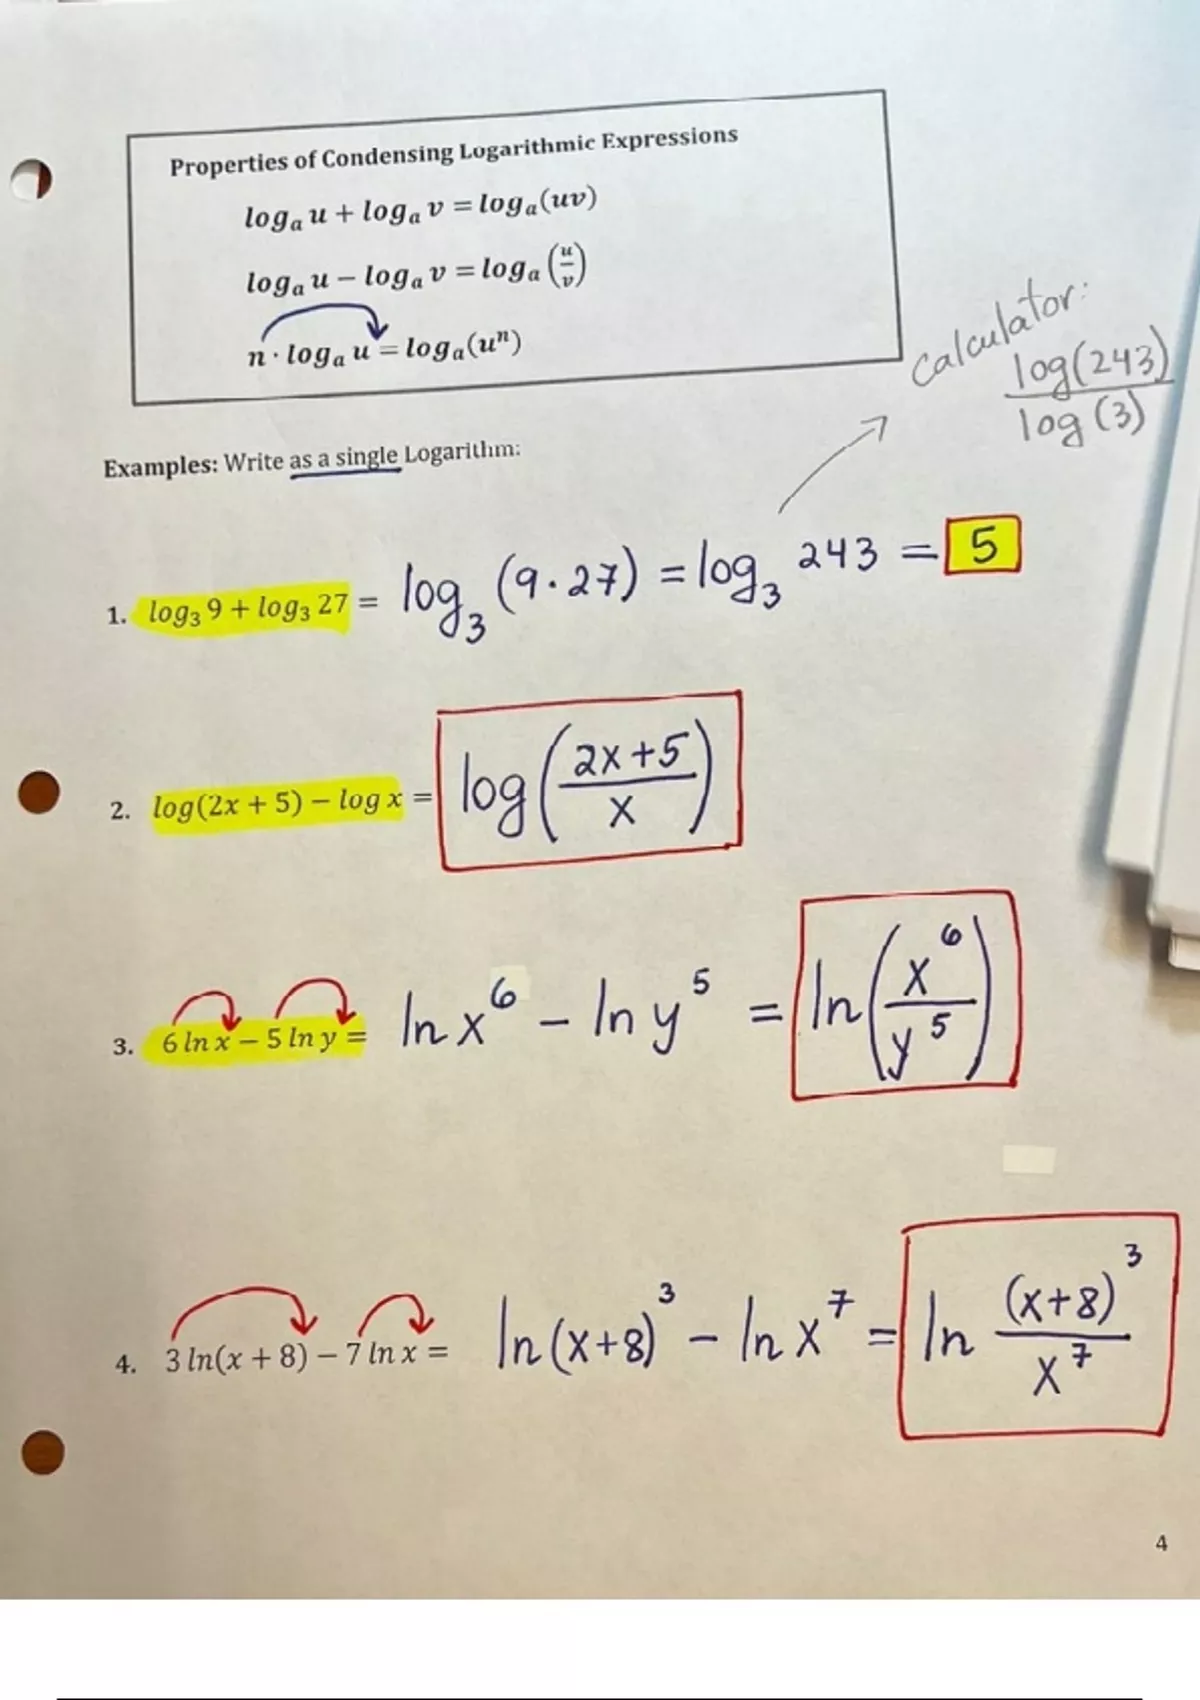 Properties of Condensing Logarithmic Expressions
logₐ u + logₐ v = logₐ(uv)
logₐ u − logₐ v = logₐ (u/v)
n · logₐ u = logₐ(uⁿ)
calculator:
log(243)
log(3)
Examples: Write as a single Logarithm:
1. log₃ 9 + log₃ 27 = log₃ (9·27) = log₃ 243 = 5
2. log(2x + 5) − log x = log((2x+5)/x)
3. 6 ln x − 5 ln y = ln x⁶ − ln y⁵ = ln(x⁶/y⁵)
4. 3 ln(x + 8) − 7 ln x = ln(x+8)³ − ln x⁷ = ln (x+8)³/x⁷
4